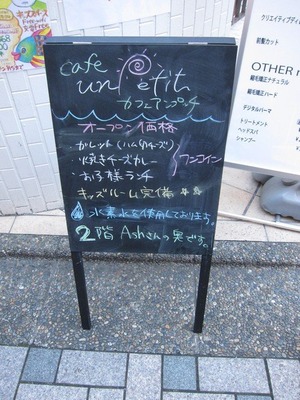 cafe
un petit
カフェアンプチ
オープン価格
・ガレット(ハム&チーズ)
・焼きチーズカレー
・お子様ランチ
ワンコイン
キッズルーム完備
水素水を使用しております。
2階 Ashさんの奥です。
クリエイティブディ
前髪カット
OTHER
縮毛矯正ナチュラル
縮毛矯正ハード
デジタルパーマ
トリートメント
ヘッドスパ
シャンプー